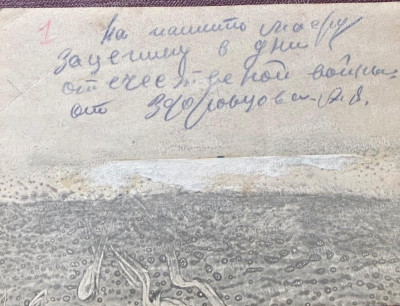 1
На память майору
Зацепину в дни
отечественной войны
от Здоровцова А.В.